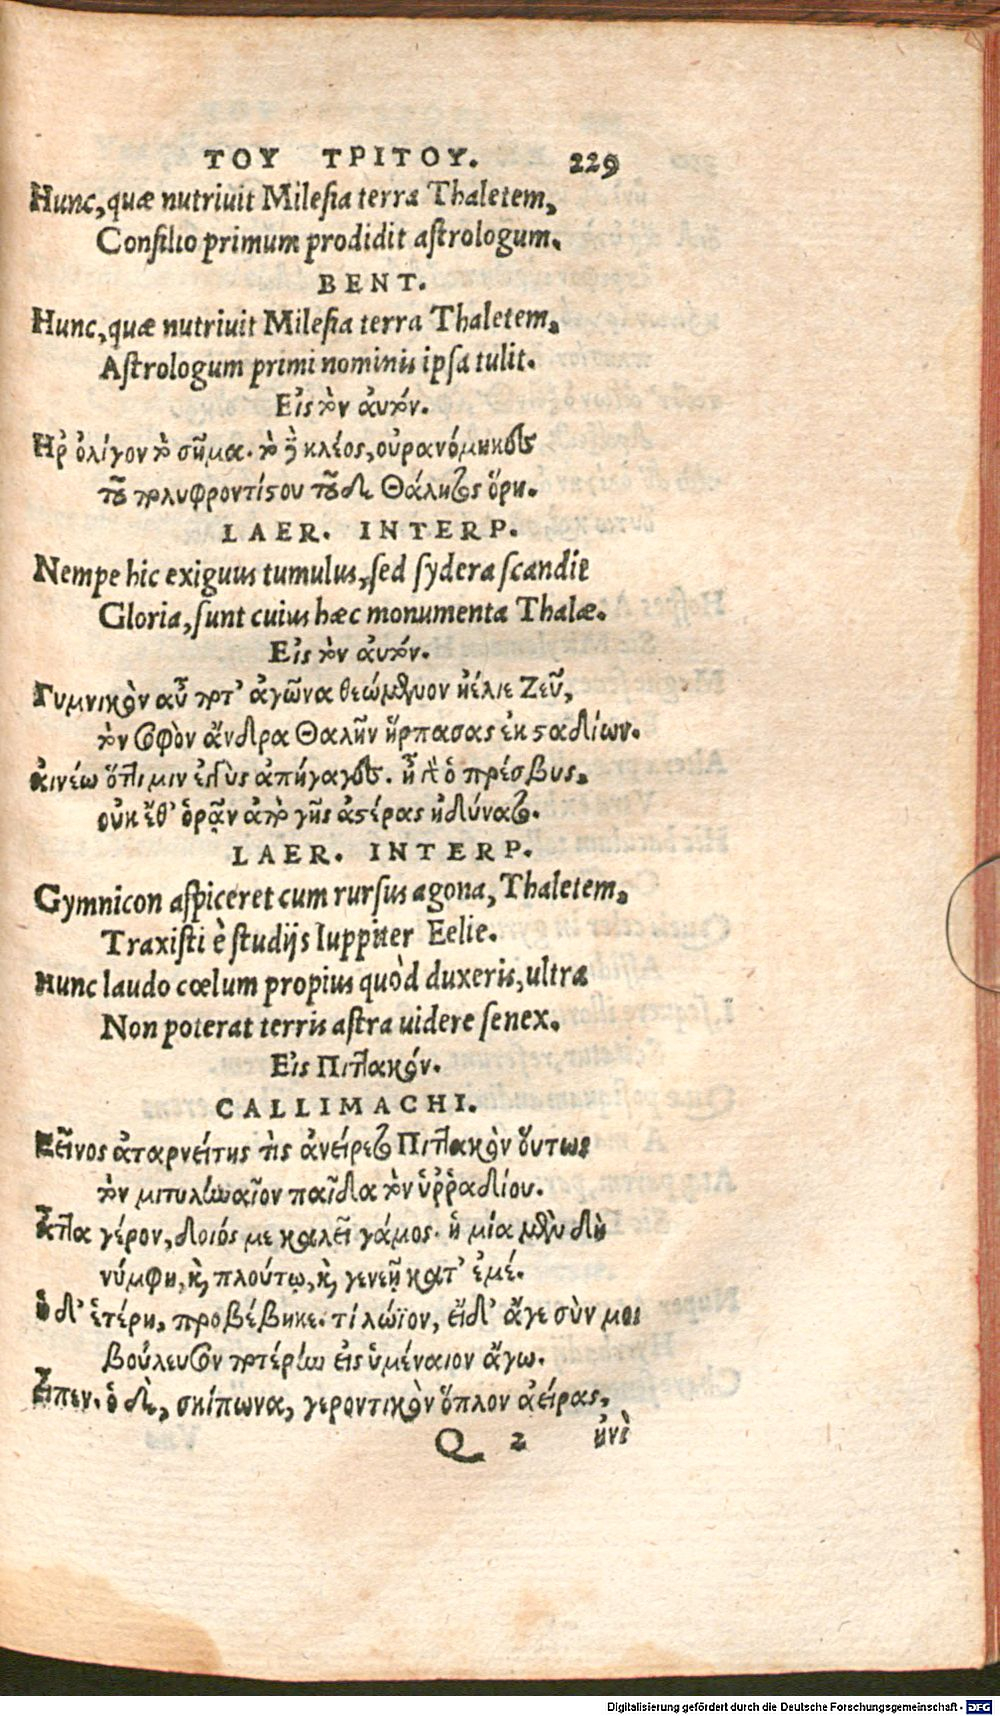 ΤΟΥ ΤΡΙΤΟΥ. 229
Hunc, quæ nutriuit Milesia terra Thaletem,
Consilio primum prodidit astrologum.
BENT.
Hunc, quæ nutriuit Milesia terra Thaletem,
Astrologum primi nominis ipsa tulit.
Εἰς τὸν ἀυτόν.
Ηῥ ὀλίγον τὸ σῆμα. τὸ ᾗ κλέος, οὐρανόμηκες
τοῦ πολυφροντίστου τοῦδε Θάλητος ὅρη.
LAER. INTERP.
Nempe hic exiguus tumulus, sed sydera scandit
Gloria, sunt cuius hæc monumenta Thalæ.
Εἰς τὸν ἀυτόν.
Γυμνικὸν αὖ ποτ' ἀγῶνα θεώμενον ἠέλιε Ζεῦ,
τὸν σοφὸν ἄνδρα Θαλῆν ἥρπασας ἐκ σταδίων.
αἰνέω ὅτι μιν ἐγγὺς ἀπήγαγες. ἦ γὰρ ὁ πρέσβυς,
οὐκ ἔθ' ὁρᾷν ἀπὸ γῆς ἀστέρας ἠδύνατο.
LAER. INTERP.
Gymnicon aspiceret cum rursus agona, Thaletem,
Traxisti è studijs Iuppiter Eelie.
Nunc laudo cœlum propius quòd duxeris, ultra
Non poterat terris astra uidere senex.
Εἰς Πιττακόν.
CALLIMACHI.
Ξεῖνος ἀταρνείτης τὶς ἀνείρετο Πιττακὸν οὕτως
τὸν μιτυληναῖον παῖδα τὸν ὑῤῥαδίου.
Ἄττα γέρον, δοιός με καλεῖ γάμος. ἡ μία μὲν δὴ
νύμφη, καὶ πλούτῳ, καὶ γενεῇ κατ' ἐμέ.
ἡ δ' ἑτέρη, προβέβηκε. τί λώϊον, εἴδ' ἄγε σὺν μοι
βούλευσον ποτέρην εἰς ὑμέναιον ἄγω.
Εἶπεν. ὁ δὲ, σκίπωνα, γεροντικὸν ὅπλον ἀείρας,
Q 2 ἠνὶ
Digitalisierung gefördert durch die Deutsche Forschungsgemeinschaft - DFG